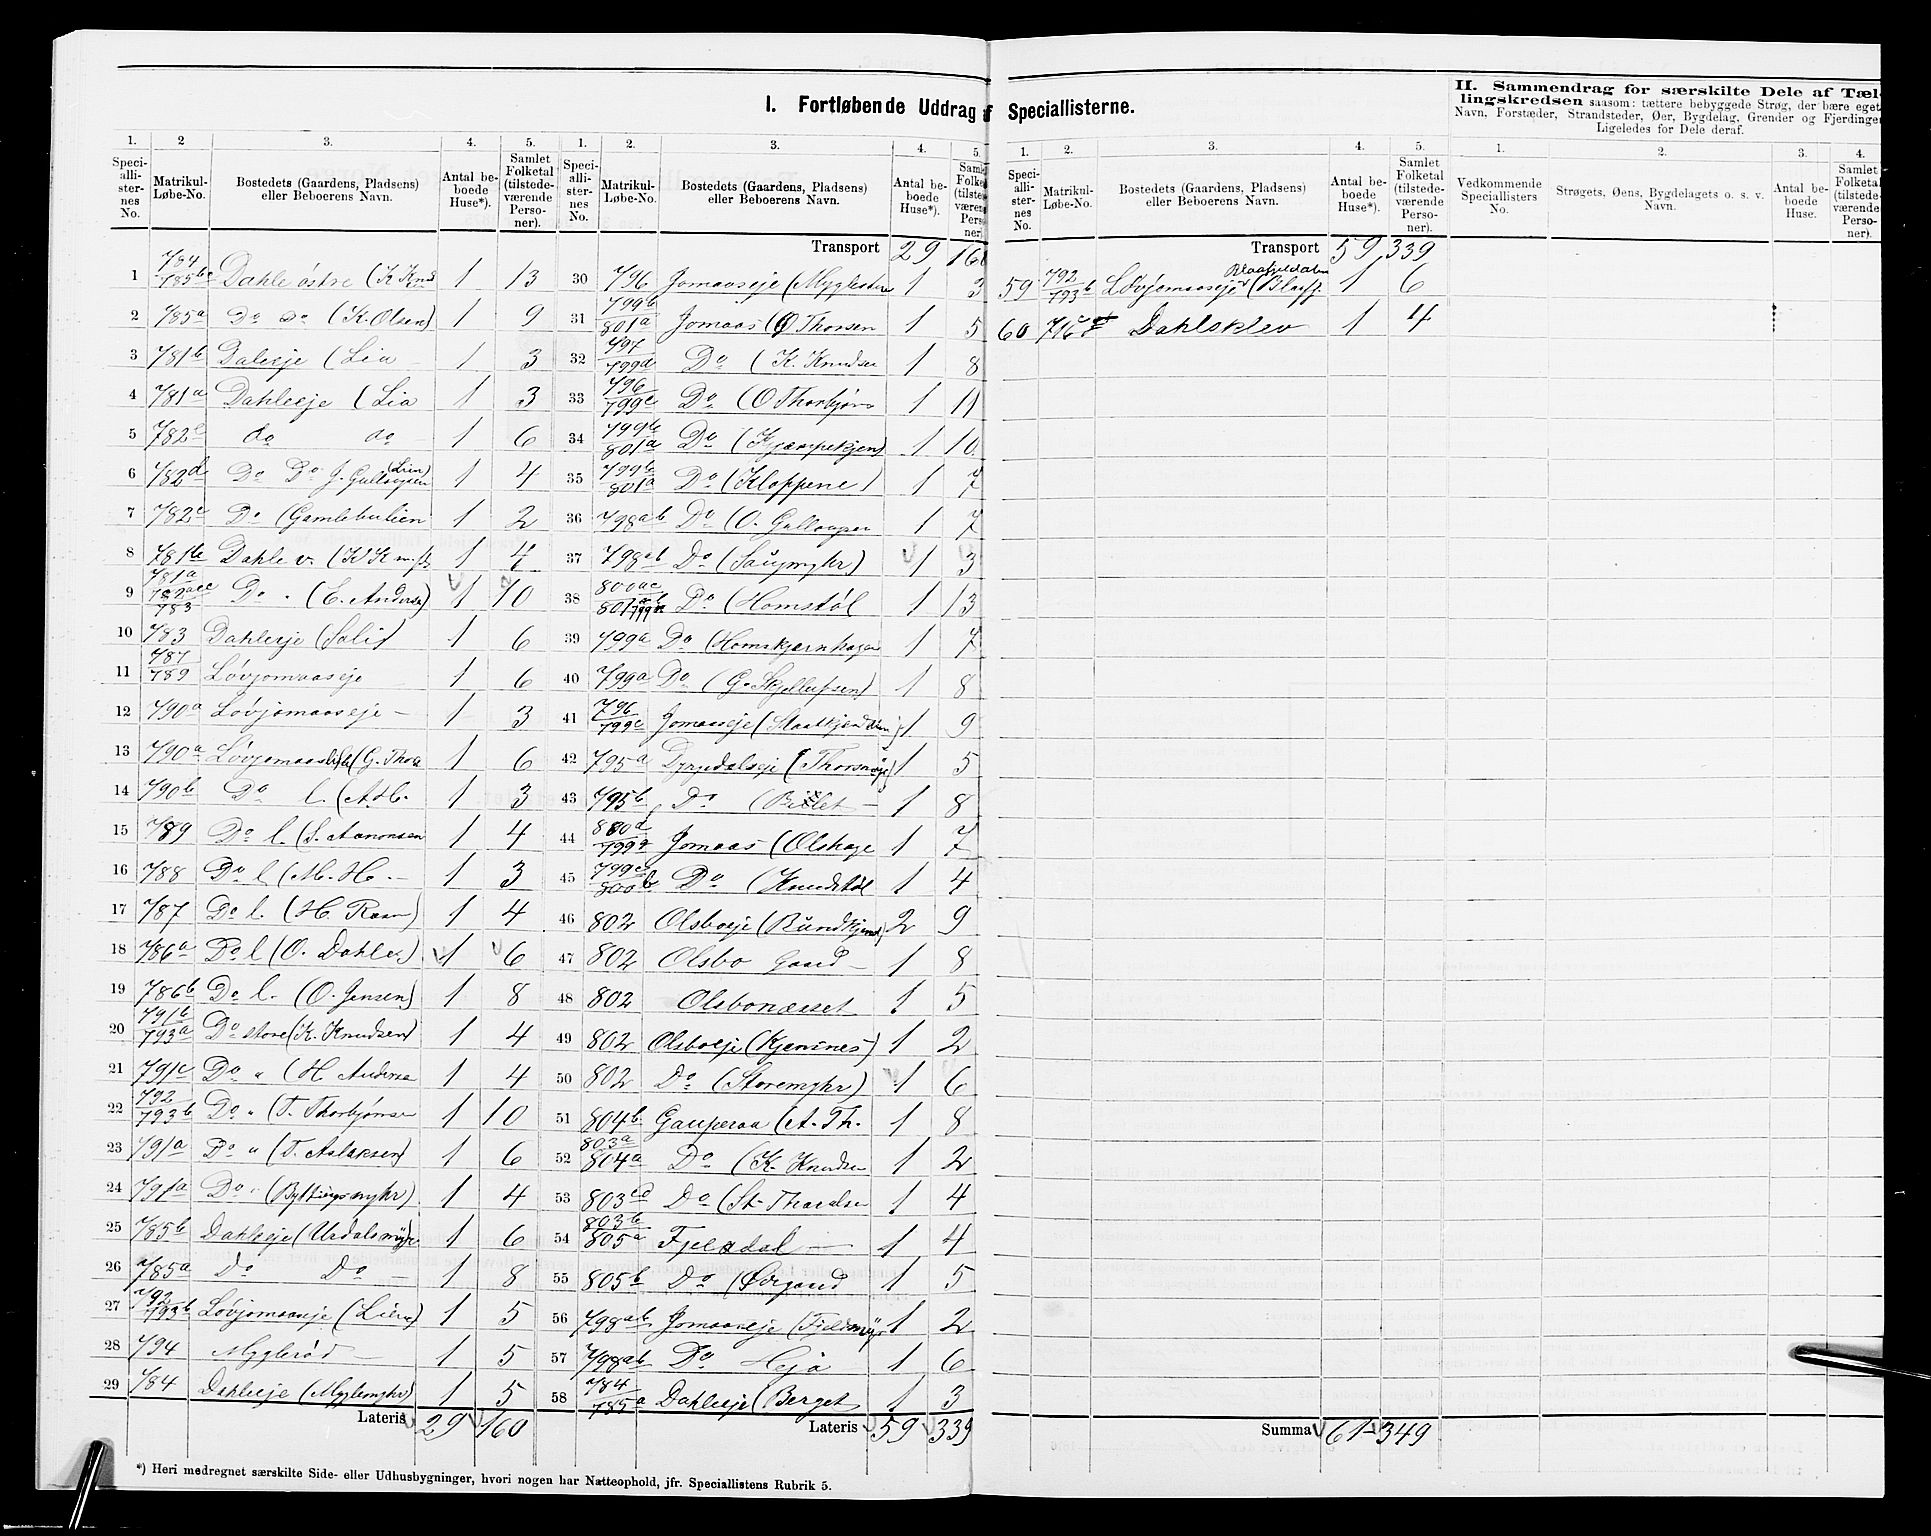 I. Fortløbende Uddrag af Speciallisterne.
II. Sammendrag for særskilte Dele af Tæl-
lingskredsen saasom: tættere bebyggede Strøg, der bære eget
Navn, Forstæder, Strandsteder, Øer, Bygdelag, Grender og Fjerdinger
Ligeledes for Dele deraf.
1. 2 3. 4. 5.
Speciallisternes No. Matrikul-Løbe-No. Bostedets (Gaardens, Pladsens) eller Beboerens Navn. Antal beboede Huse*). Samlet Folketal (tilstedeværende Personer).
1 784/785bc Dahle østre (K Knud 1 13
2 785a Do Do (K. Olsen) 1 9
3 781b Daleeje (Lia 1 3
4 781a Dahleeje (Lia 1 3
5 782c do do 1 6
6 782d Do Do J. Gullovsen (Lien) 1 4
7 782c Do (Gamlebulien 1 2
8 781b Dahle v. (K K 1 4
9 781a/782/783 Do " (E. Anders 1 10
10 783 Dahleeje (Soli) 1 6
11 787/789 Løvjomaaseje 1 6
12 790a Løvjomaaseje – 1 3
13 790a Løvjomaas (G. Tho 1 6
14 790b Do l. (A.H. 1 3
15 789 Do l. (S. Aanonsen 1 4
16 788 Do l (M. H. – 1 3
17 787 Do l. (H. Roan) 1 4
18 786a Do l (O. Dahle) 1 6
19 786b Do l. (O. Jensen) 1 8
20 791b/793a Do store (K. Knudsen) 1 4
21 791c Do " (H Anderse 1 4
22 792/793b Do " (T. Thorbjønse 1 10
23 791a Do " (T. Aslaksen) 1 6
24 791a Do " (Byttingsmyhr) 1 4
25 785b Dahleeje (Urdalsmyr 1 6
26 785a Do Do – 1 8
27 792/793b Løvjomaaseje (Lien) 1 5
28 794 Myglerød – 1 5
29 784 Dahleeje (Myglemyhr) 1 5
Lateris 29 160
1. 2. 3. 4. 5.
Speciallisternes No. Matrikul-Løbe-No. Bostedets (Gaardens, Pladsens) eller Beboerens Navn. Antal beboede Huse*). Samlet Folketal (tilstedeværende Personer).
Transport 29 160
30 796 Jomaaseje (Myglesten 1 3
31 799b/801a Jomaas (O Thorsen 1 5
32 797/799d Do (K. Knudsen 1 8
33 796/799c Do (O Thorbjøns 1 11
34 799b/801a Do (Kjæmpekjen) 1 10
35 799b/801a Do (Kloppene) 1 7
36 798ab Do (O. Gullovsen 1 7
37 798ab Do (Saugmyhr) 1 3
38 800ac/801ab Do (Homstøl 1 13
39 799a Do (Homskjærnhagen 1 7
40 799a Do (G. Skjellufsen) 1 8
41 796/799c Jomaaseje (Slaatkjendalen) 1 9
42 795a Dyrdalseje (Thorsmyr) 1 5
43 795b Do (Billet – 1 8
44 800d/799 Jomaas (Olshage 1 7
45 799c/800b Do (Knudstøl 1 4
46 802 Olsboeje (Rundkjend) 2 9
47 802 Olsbo Gaard – 1 8
48 802 Olsbonæsset 1 5
49 802 Olsboeje (Kjensnes) 1 2
50 802 Do (Storemyhr) 1 6
51 804b Gauperaa (A. Th. 1 8
52 803a/804a Do (K. Knudse 1 2
53 803cd Do (St. Tharalse 1 4
54 803b/805a Fjeldal – 1 4
55 805b Do (Øigaard 1 5
56 798ab Jomaaseje (Fjeldmyr 1 2
57 798ab Do Heja 1 6
58 784/785a Dahleeje (Berget 1 3
Lateris 59 339
1. 2. 3. 4. 5.
Speciallisternes No. Matrikul-Løbe-No. Bostedets (Gaardens, Pladsens) eller Beboerens Navn. Antal beboede Huse*). Samlet Folketal (tilstedeværende Personer).
Transport 59 339
59 792/793b Løvjomaaseje (Blaafj. Blaafjeldalen 1 6
60 716 Dahlsklev 1 4
Summa 61 349
1. 2. 3. 4.
Vedkommende Speciallisters No. Strøgets, Øens, Bygdelagets o. s. v. Navn. Antal beboede Huse. Samlet Folketal (tilstedeværende Personer)
*) Heri medregnet særskilte Side- eller Udhusbygninger, hvori nogen har Natteophold, jfr. Speciallistens Rubrik 5.